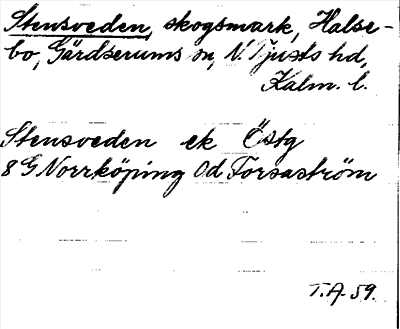 Stensveden, skogsmark, Halse-
bo, Gärdserums sn, N. Tjusts hd,
Kalm. l.
Stensveden ek Östg
8G Norrköping 0d Forsaström
T.A. 59.